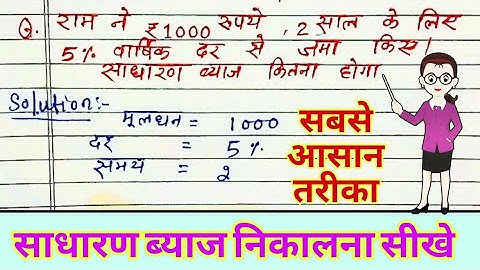 Q. राम ने ₹1000 रुपये, 2 साल के लिए
5% वार्षिक दर से जमा किए।
साधारण ब्याज कितना होगा
Solution:-
मूलधन = 1000
दर = 5%
समय = 2
सबसे
आसान
तरीका
साधारण ब्याज निकालना सीखे